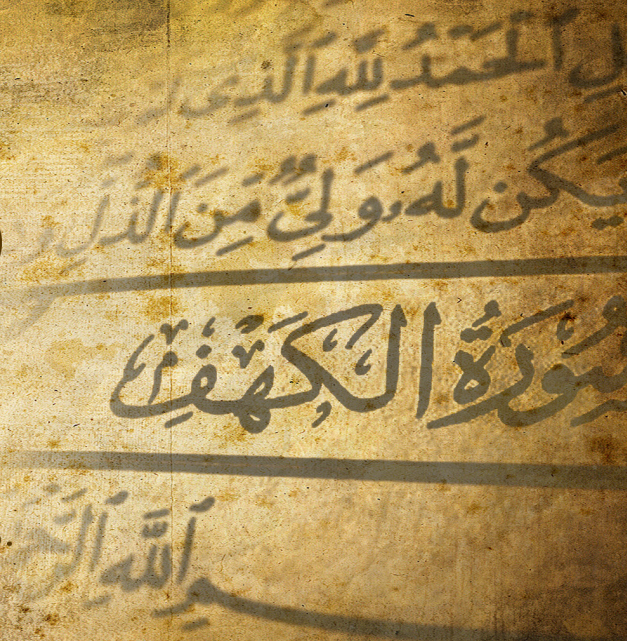 ٱلْحَمْدُ لِلَّهِ ٱلَّذِى
يَكُن لَّهُۥ وَلِىٌّ مِّنَ ٱلذُّلِّ
سُورَةُ الْكَهْفِ
ٱللَّهِ ٱلرَّحْ